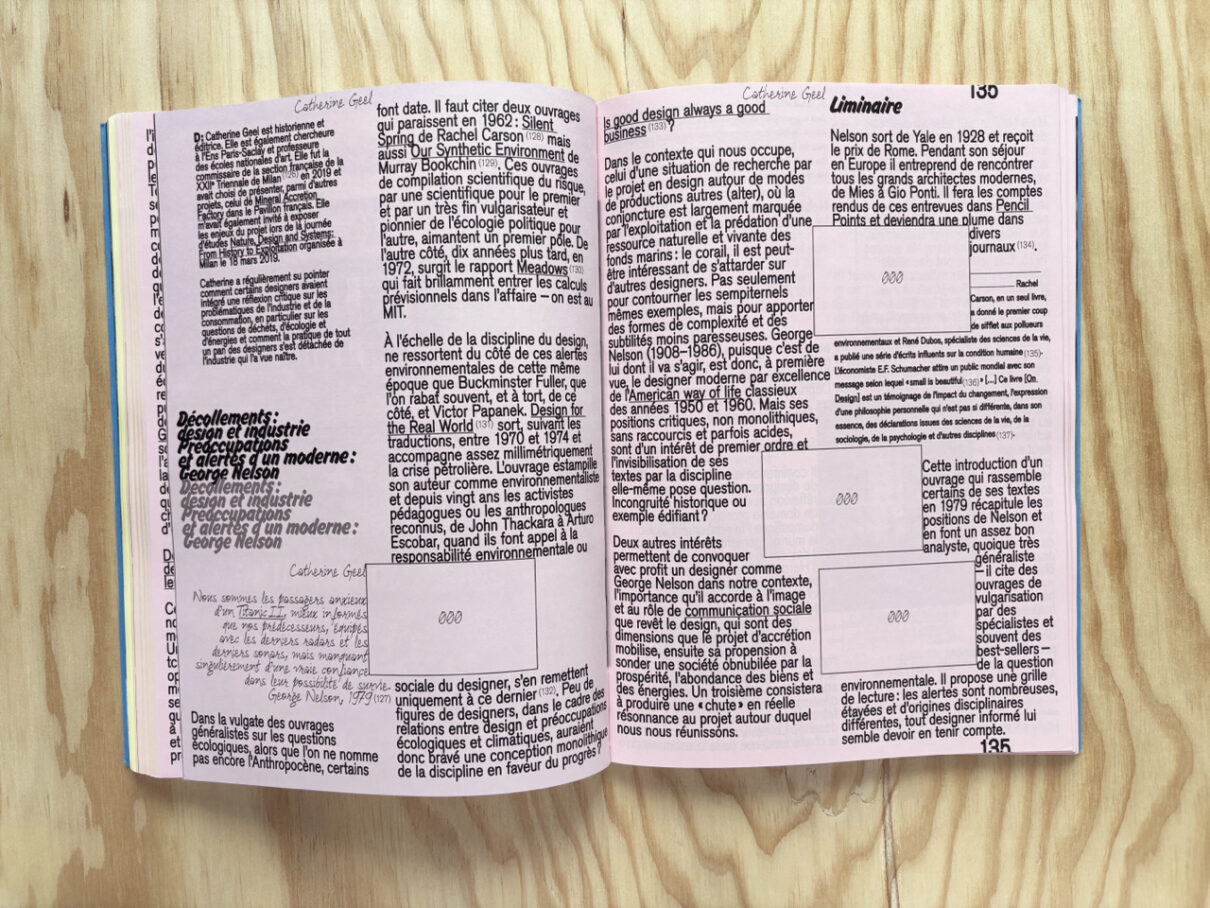 Catherine Geel
D: Catherine Geel est historienne et
éditrice. Elle est également chercheure
à l'Ens Paris-Saclay et professeure
des écoles nationales d'art. Elle fut la
commissaire de la section française de la
XXIIe Triennale de Milan (126) en 2019 et
avait choisi de présenter, parmi d'autres
projets, celui de Mineral Accretion
Factory dans le Pavillon français. Elle
m'avait également invité à exposer
les enjeux du projet lors de la journée
d'études Nature, Design and Systems:
From History to Exploitation organisée à
Milan le 18 mars 2019.
Catherine a régulièrement su pointer
comment certains designers avaient
intégré une réflexion critique sur les
problématiques de l'industrie et de la
consommation, en particulier sur les
questions de déchets, d'écologie et
d'énergies et comment la pratique de tout
un pan des designers s'est détachée de
l'industrie qui l'a vue naître.
Décollements :
design et industrie
Préoccupations
et alertes d'un moderne :
George Nelson
Décollements :
design et industrie
Préoccupations
et alertes d'un moderne :
George Nelson
Catherine Geel
Nous sommes les passagers anxieux
d'un Titanic II, mieux informés
que nos prédécesseurs, équipés
avec les derniers radars et les
derniers sonars, mais manquant
singulièrement d'une vraie confiance
dans leur possibilité de survie.
George Nelson, 1979 (127)
Dans la vulgate des ouvrages
généralistes sur les questions
écologiques, alors que l'on ne nomme
pas encore l'Anthropocène, certains
font date. Il faut citer deux ouvrages
qui paraissent en 1962 : Silent
Spring de Rachel Carson (128) mais
aussi Our Synthetic Environment de
Murray Bookchin (129). Ces ouvrages
de compilation scientifique du risque,
par une scientifique pour le premier
et par un très fin vulgarisateur et
pionnier de l'écologie politique pour
l'autre, aimantent un premier pôle. De
l'autre côté, dix années plus tard, en
1972, surgit le rapport Meadows (130)
qui fait brillamment entrer les calculs
prévisionnels dans l'affaire — on est au
MIT.
À l'échelle de la discipline du design,
ne ressortent du côté de ces alertes
environnementales de cette même
époque que Buckminster Fuller, que
l'on rabat souvent, et à tort, de ce
côté, et Victor Papanek. Design for
the Real World (131) sort, suivant les
traductions, entre 1970 et 1974 et
accompagne assez millimétriquement
la crise pétrolière. L'ouvrage estampille
son auteur comme environnementaliste
et depuis vingt ans les activistes
pédagogues ou les anthropologues
reconnus, de John Thackara à Arturo
Escobar, quand ils font appel à la
responsabilité environnementale ou
000
sociale du designer, s'en remettent
uniquement à ce dernier (132). Peu de
figures de designers, dans le cadre des
relations entre design et préoccupations
écologiques et climatiques, auraient
donc bravé une conception monolithique
de la discipline en faveur du progrès ?
Catherine Geel
Is good design always a good
business (133) ?
Dans le contexte qui nous occupe,
celui d'une situation de recherche par
le projet en design autour de modes
de productions autres (alter), où la
conjoncture est largement marquée
par l'exploitation et la prédation d'une
ressource naturelle et vivante des
fonds marins : le corail, il est peut-
être intéressant de s'attarder sur
d'autres designers. Pas seulement
pour contourner les sempiternels
mêmes exemples, mais pour apporter
des formes de complexité et des
subtilités moins paresseuses. George
Nelson (1908–1986), puisque c'est de
lui dont il va s'agir, est donc, à première
vue, le designer moderne par excellence
de l'American way of life classieux
des années 1950 et 1960. Mais ses
positions critiques, non monolithiques,
sans raccourcis et parfois acides,
sont d'un intérêt de premier ordre et
l'invisibilisation de ses
textes par la discipline
elle-même pose question.
Incongruité historique ou
exemple édifiant ?
Deux autres intérêts
permettent de convoquer
avec profit un designer comme
George Nelson dans notre contexte,
l'importance qu'il accorde à l'image
et au rôle de communication sociale
que revêt le design, qui sont des
dimensions que le projet d'accrétion
mobilise, ensuite sa propension à
sonder une société obnubilée par la
prospérité, l'abondance des biens et
des énergies. Un troisième consistera
à produire une « chute » en réelle
résonnance au projet autour duquel
nous nous réunissons.
135
Liminaire
Nelson sort de Yale en 1928 et reçoit
le prix de Rome. Pendant son séjour
en Europe il entreprend de rencontrer
tous les grands architectes modernes,
de Mies à Gio Ponti. Il fera les comptes
rendus de ces entrevues dans Pencil
Points et deviendra une plume dans
divers
journaux (134).
000
Rachel
Carson, en un seul livre,
a donné le premier coup
de sifflet aux pollueurs
environnementaux et René Dubos, spécialiste des sciences de la vie,
a publié une série d'écrits influents sur la condition humaine (135).
L'économiste E.F. Schumacher attire un public mondial avec son
message selon lequel « small is beautiful (136) » [...] Ce livre [On
Design] est un témoignage de l'impact du changement, l'expression
d'une philosophie personnelle qui n'est pas si différente, dans son
essence, des déclarations issues des sciences de la vie, de la
sociologie, de la psychologie et d'autres disciplines (137).
000
Cette introduction d'un
ouvrage qui rassemble
certains de ses textes
en 1979 récapitule les
positions de Nelson et
en font un assez bon
analyste, quoique très
généraliste
— il cite des
ouvrages de
vulgarisation
par des
spécialistes et
souvent des
best-sellers —
de la question
000
environnementale. Il propose une grille
de lecture : les alertes sont nombreuses,
étayées et d'origines disciplinaires
différentes, tout designer informé lui
semble devoir en tenir compte.
135